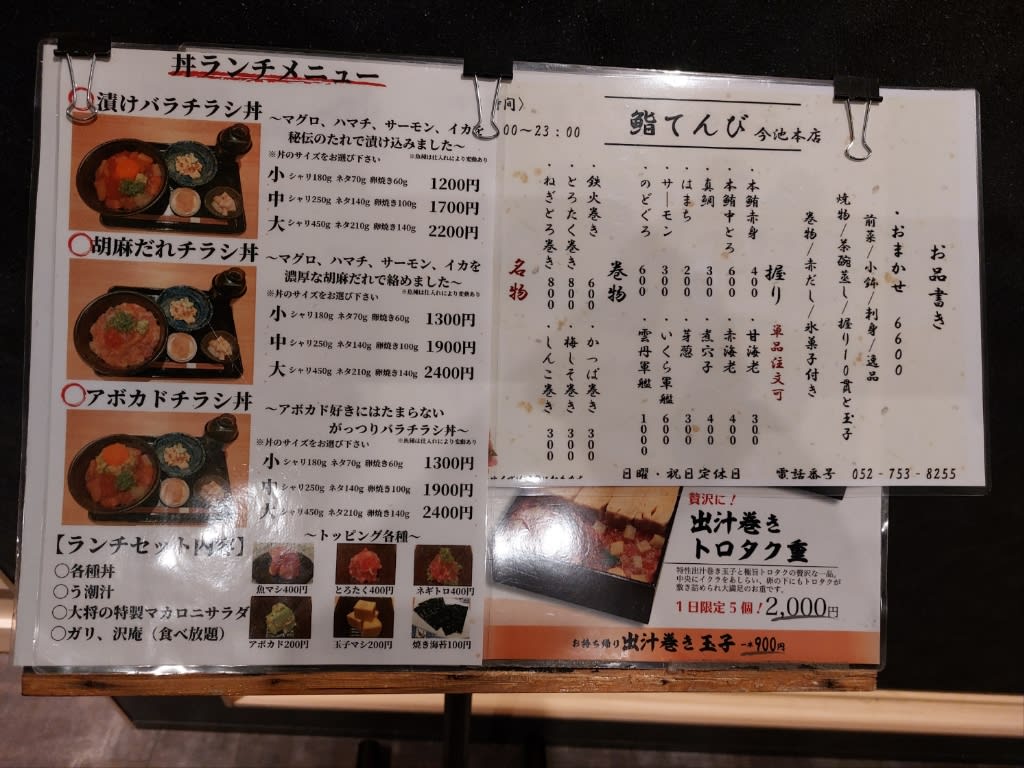 丼ランチメニュー
漬けバラチラシ丼
～マグロ、ハマチ、サーモン、イカを
秘伝のたれで漬け込みました～
※丼のサイズをお選び下さい ※魚種は仕入れにより変動あり
小 シャリ180g ネタ70g 卵焼き60g 1200円
中 シャリ250g ネタ140g 卵焼き100g 1700円
大 シャリ450g ネタ210g 卵焼き140g 2200円
胡麻だれチラシ丼
～マグロ、ハマチ、サーモン、イカを
濃厚な胡麻だれで絡めました～
※丼のサイズをお選び下さい ※魚種は仕入れにより変動あり
小 シャリ180g ネタ70g 卵焼き60g 1300円
中 シャリ250g ネタ140g 卵焼き100g 1900円
大 シャリ450g ネタ210g 卵焼き140g 2400円
アボカドチラシ丼
～アボカド好きにはたまらない
がっつりバラチラシ丼～
※丼のサイズをお選び下さい ※魚種は仕入れにより変動あり
小 シャリ180g ネタ70g 卵焼き60g 1300円
中 シャリ250g ネタ140g 卵焼き100g 1900円
大 シャリ450g ネタ210g 卵焼き140g 2400円
【ランチセット内容】
〇各種丼
〇う潮汁
〇大将の特製マカロニサラダ
〇ガリ、沢庵（食べ放題）
～トッピング各種～
魚マシ400円
とろたく400円
ネギトロ400円
アボカド200円
玉子マシ200円
焼き海苔100円
間〉
00～23：00
鮨てんび 今池本店
お品書き
・おまかせ 6600
前菜/小鉢/刺身/逸品
焼物/茶碗蒸し/握り10貫と玉子
巻物/赤だし/氷菓子付き
握り 単品注文可
・本鮪赤身 400
・本鮪中とろ 600
・真鯛 300
・はまち 200
・サーモン 300
・のどぐろ 600
・甘海老 300
・赤海老 400
・煮穴子 400
・芽葱 200
・いくら軍艦 600
・雲丹軍艦 1000
巻物
・鉄火巻き 600
・とろたく巻き 800
・ねぎとろ巻き 800
・かっぱ巻き 300
・梅しそ巻き 300
・しんこ巻き 300
名物
日曜・祝日定休日 電話番号 052-753-8255
贅沢に！
出汁巻き
トロタク重
特性出汁巻き玉子と極旨トロタクの贅沢な一品。
中央にイクラをあしらい、卵の下にもトロタクが
敷き詰められ大満足のお重です。
1日限定5個！2,000円
お持ち帰り 出汁巻き玉子 一本900円